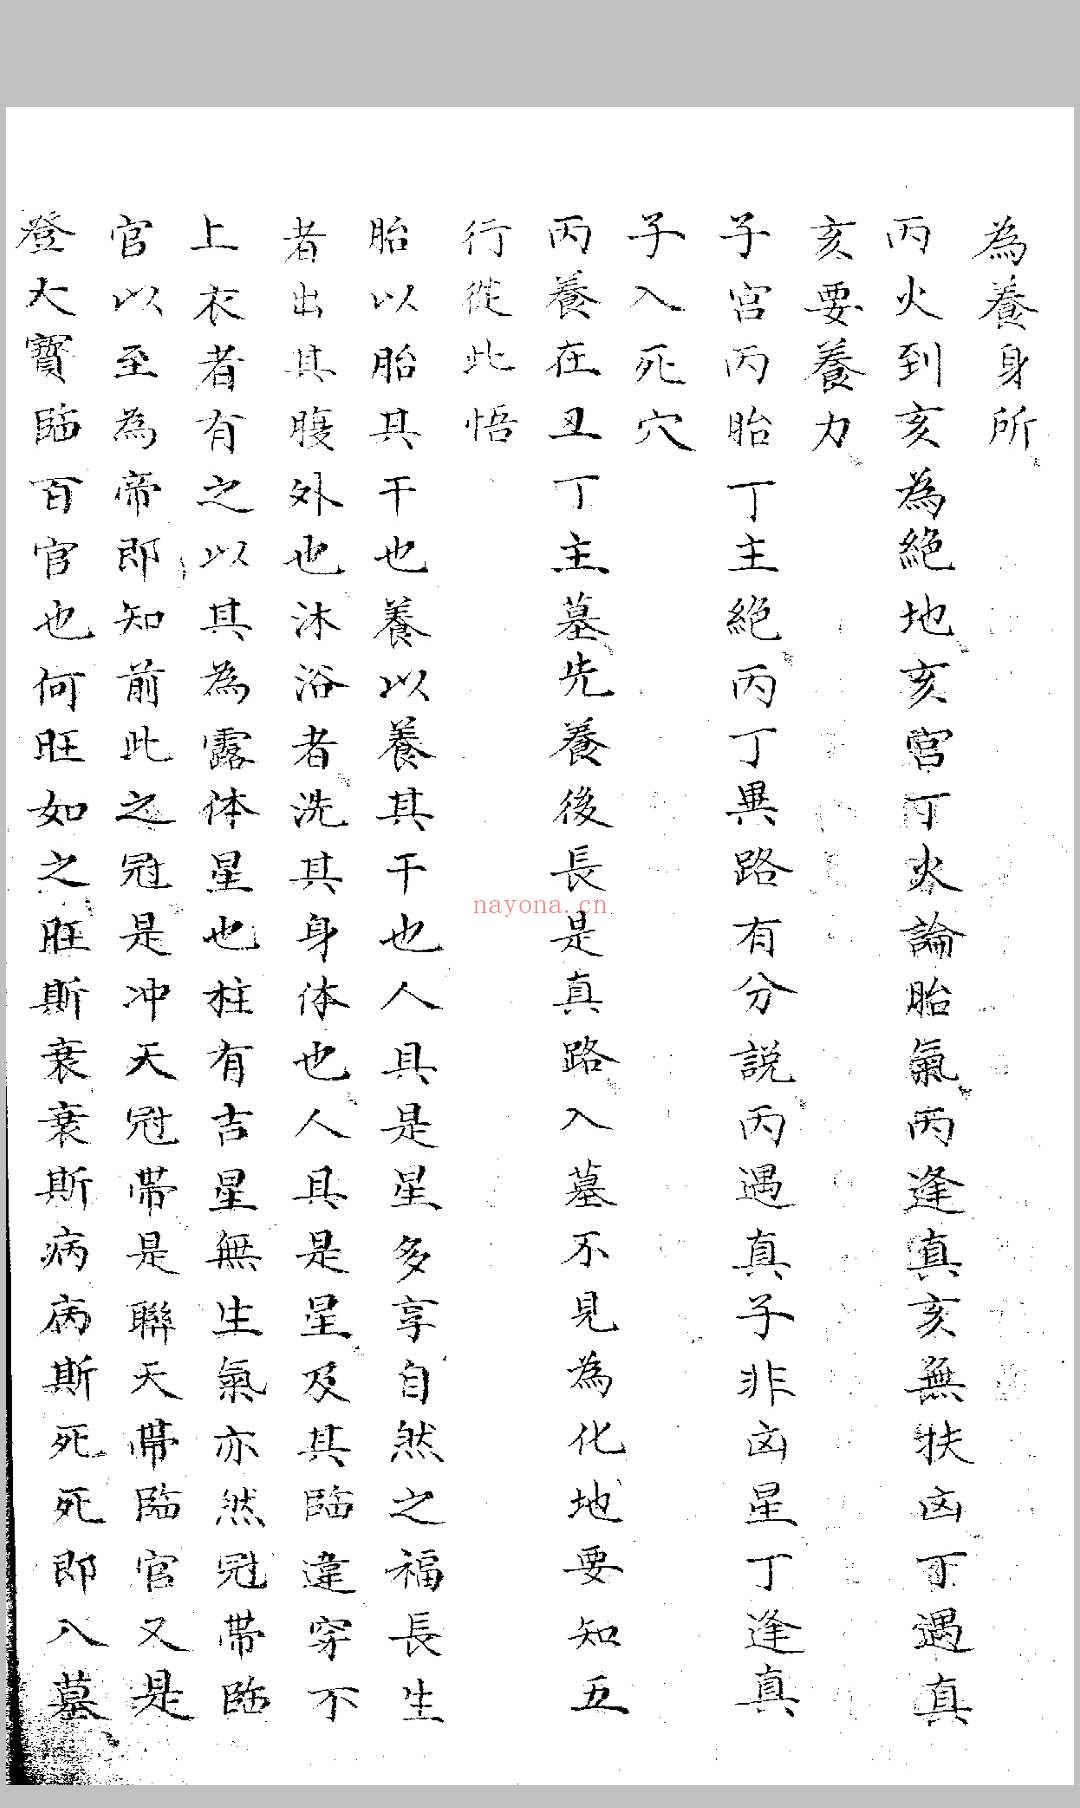 為養身所
丙火到亥為絕地亥宮丁火論胎氣丙逢真亥無扶凶丁遇真
亥要養力
子宮丙胎丁主絕丙丁異路有分說丙遇真子非凶星丁逢真
子入死穴
丙養在丑丁主墓先養後長是真路入墓不見為化地要知五
行從此悟
胎以胎其干也養以養其干也人具是星多享自然之福長生
者出其腹外也沐浴者洗其身体也人具是星及其臨違穿不
上衣者有之以其為露体星也柱有吉星無生氣亦然冠帶臨
官以至為帝即知前此之冠是冲天冠帶是聯天帶臨官又是
登大寶臨百官也何旺如之旺斯衰衰斯病病斯死死即入墓
nayona.cn